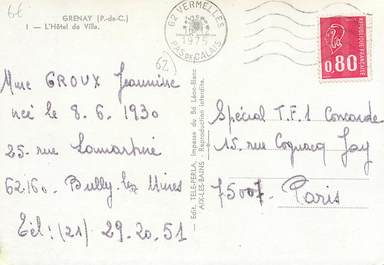 6€
GRENAY (P.-de-C.)
1 — L'Hôtel de Ville.
62 VERMELLES
1975
PAS-DE-CALAIS
62
RÉPUBLIQUE FRANÇAISE
0,80
Mme GROUX Jeannine
née le 8.6.1930
25. rue Lamartine
62160. Bully les Mines
Tél: (21) 29.20.51
Edit. TELE-PERLA, Impasse du 8d Léon-Blanc
AIX-LES-BAINS - Reproduction interdite.
Spécial T.F.1 Concorde
15. rue Cognacq Jay
75007. Paris